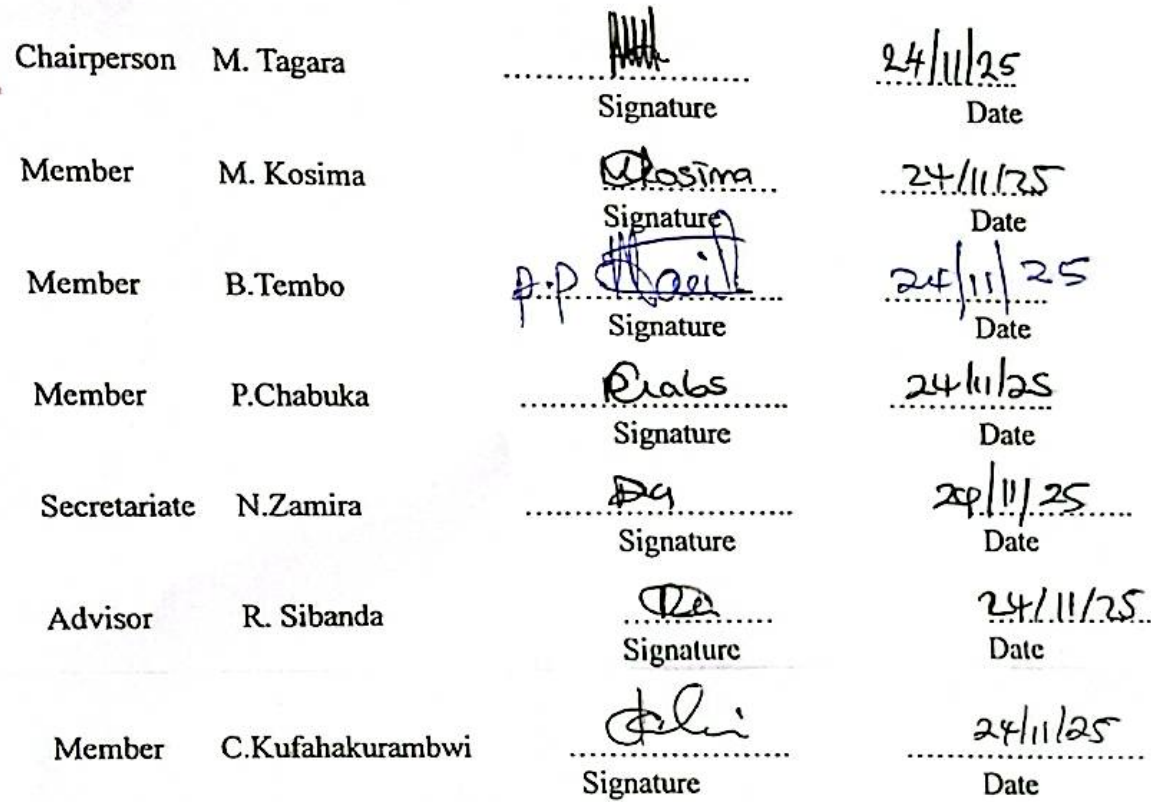 Chairperson M. Tagara 24/11/25
Signature Date
Member M. Kosima MKosima 24/11/25
Signature Date
Member B.Tembo p.p 24/11/25
Signature Date
Member P.Chabuka 24/11/25
Signature Date
Secretariate N.Zamira 24/11/25
Signature Date
Advisor R. Sibanda 24/11/25
Signature Date
Member C.Kufahakurambwi 24/11/25
Signature Date